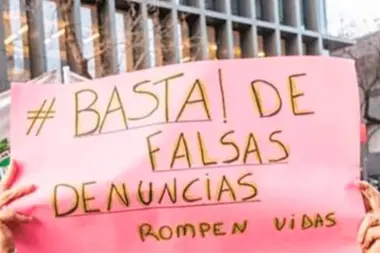 # BASTA! DE
FALSAS
DENUNCIAS
ROMPEN VIDAS